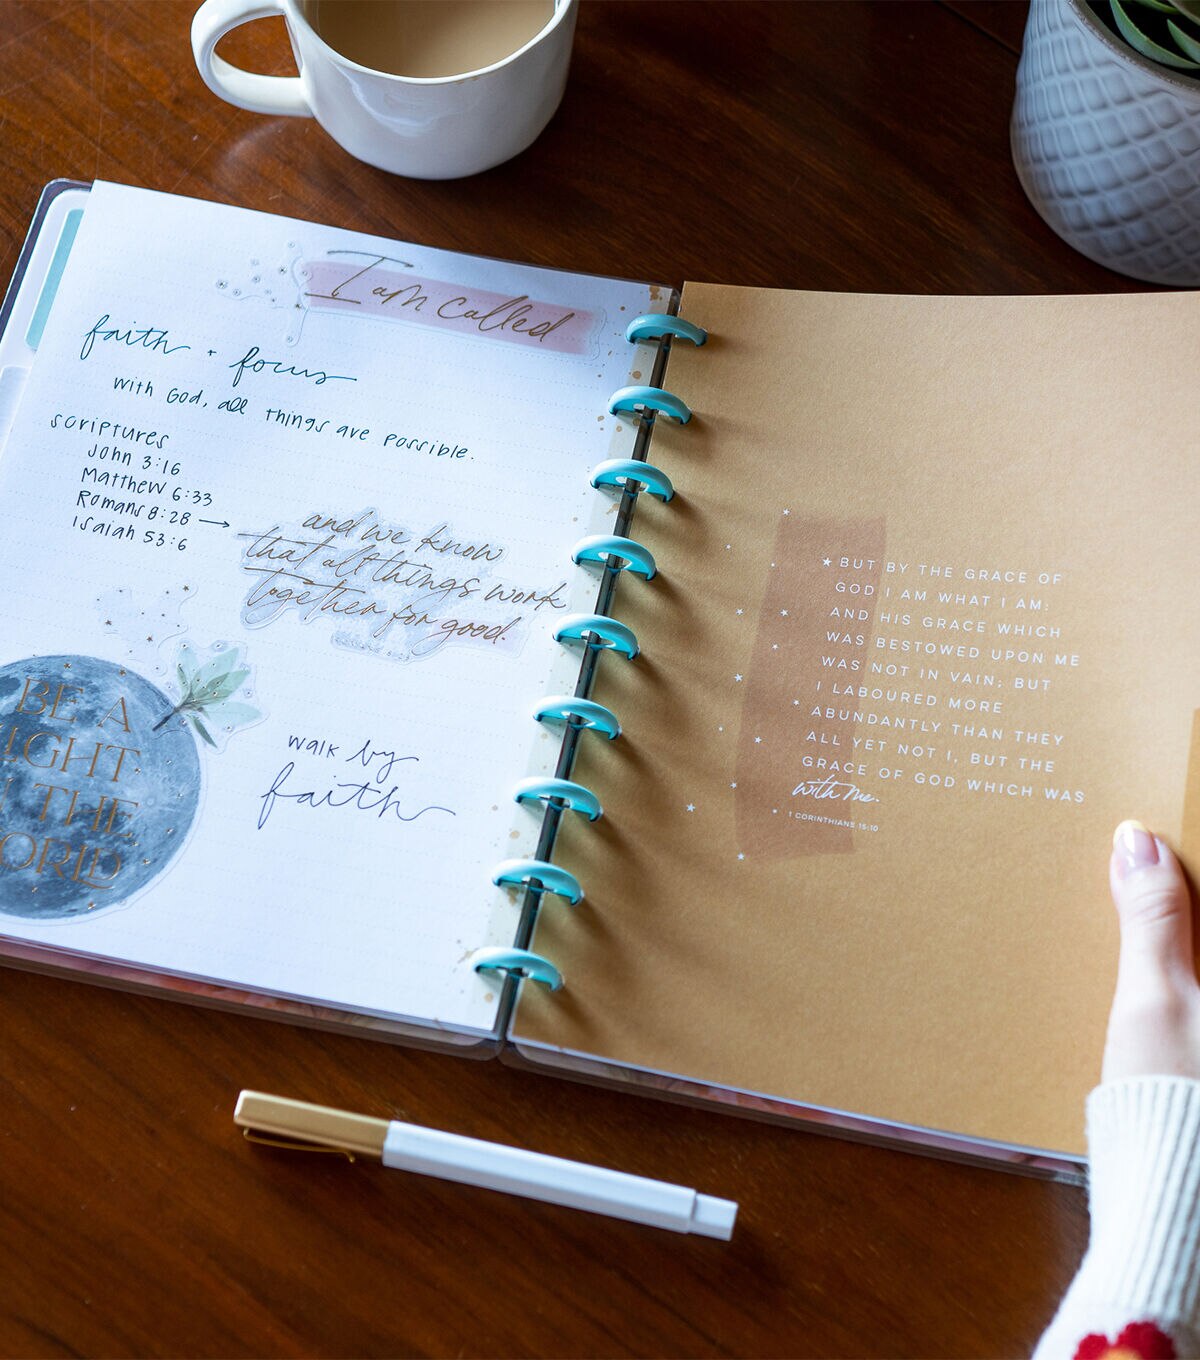 I am called
faith + focus
with God, all things are possible.
scriptures
John 3:16
Matthew 6:33
Romans 8:28 →
Isaiah 53:6
and we know
that all things work
together for good.
BE A
LIGHT
THE
WORLD
walk by
faith
BUT BY THE GRACE OF
GOD I AM WHAT I AM:
AND HIS GRACE WHICH
WAS BESTOWED UPON ME
WAS NOT IN VAIN; BUT
I LABOURED MORE
ABUNDANTLY THAN THEY
ALL YET NOT I, BUT THE
GRACE OF GOD WHICH WAS
with me.
1 CORINTHIANS 15:10